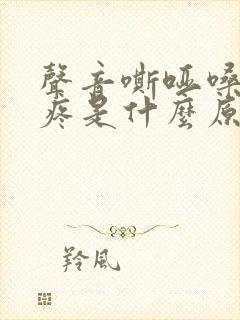 聲音嘶啞嗓
疼是什麼原
羚風